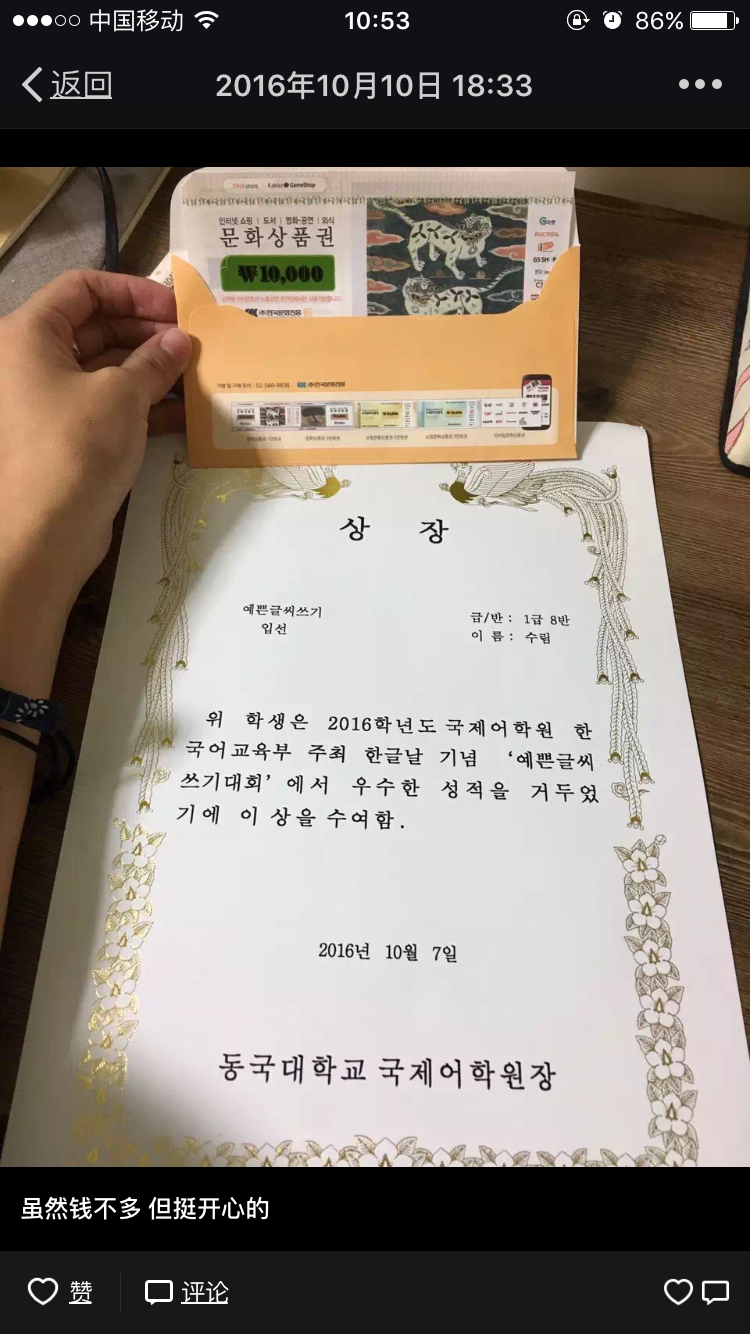 中国移动
10:53
86%
返回
2016年10月10日 18:33
인터넷 쇼핑 | 도서 | 영화·공연 | 외식
문화상품권
₩10,000
(주)한국문화진흥
(주)한국문화진흥
상 장
예쁜글씨쓰기
입선
급/반 : 1급 8반
이 름 : 수림
위 학생은 2016학년도 국제어학원 한
국어교육부 주최 한글날 기념 ‘예쁜글씨
쓰기대회’ 에서 우수한 성적을 거두었
기에 이 상을 수여함.
2016년 10월 7일
동국대학교 국제어학원장
虽然钱不多 但挺开心的
赞
评论